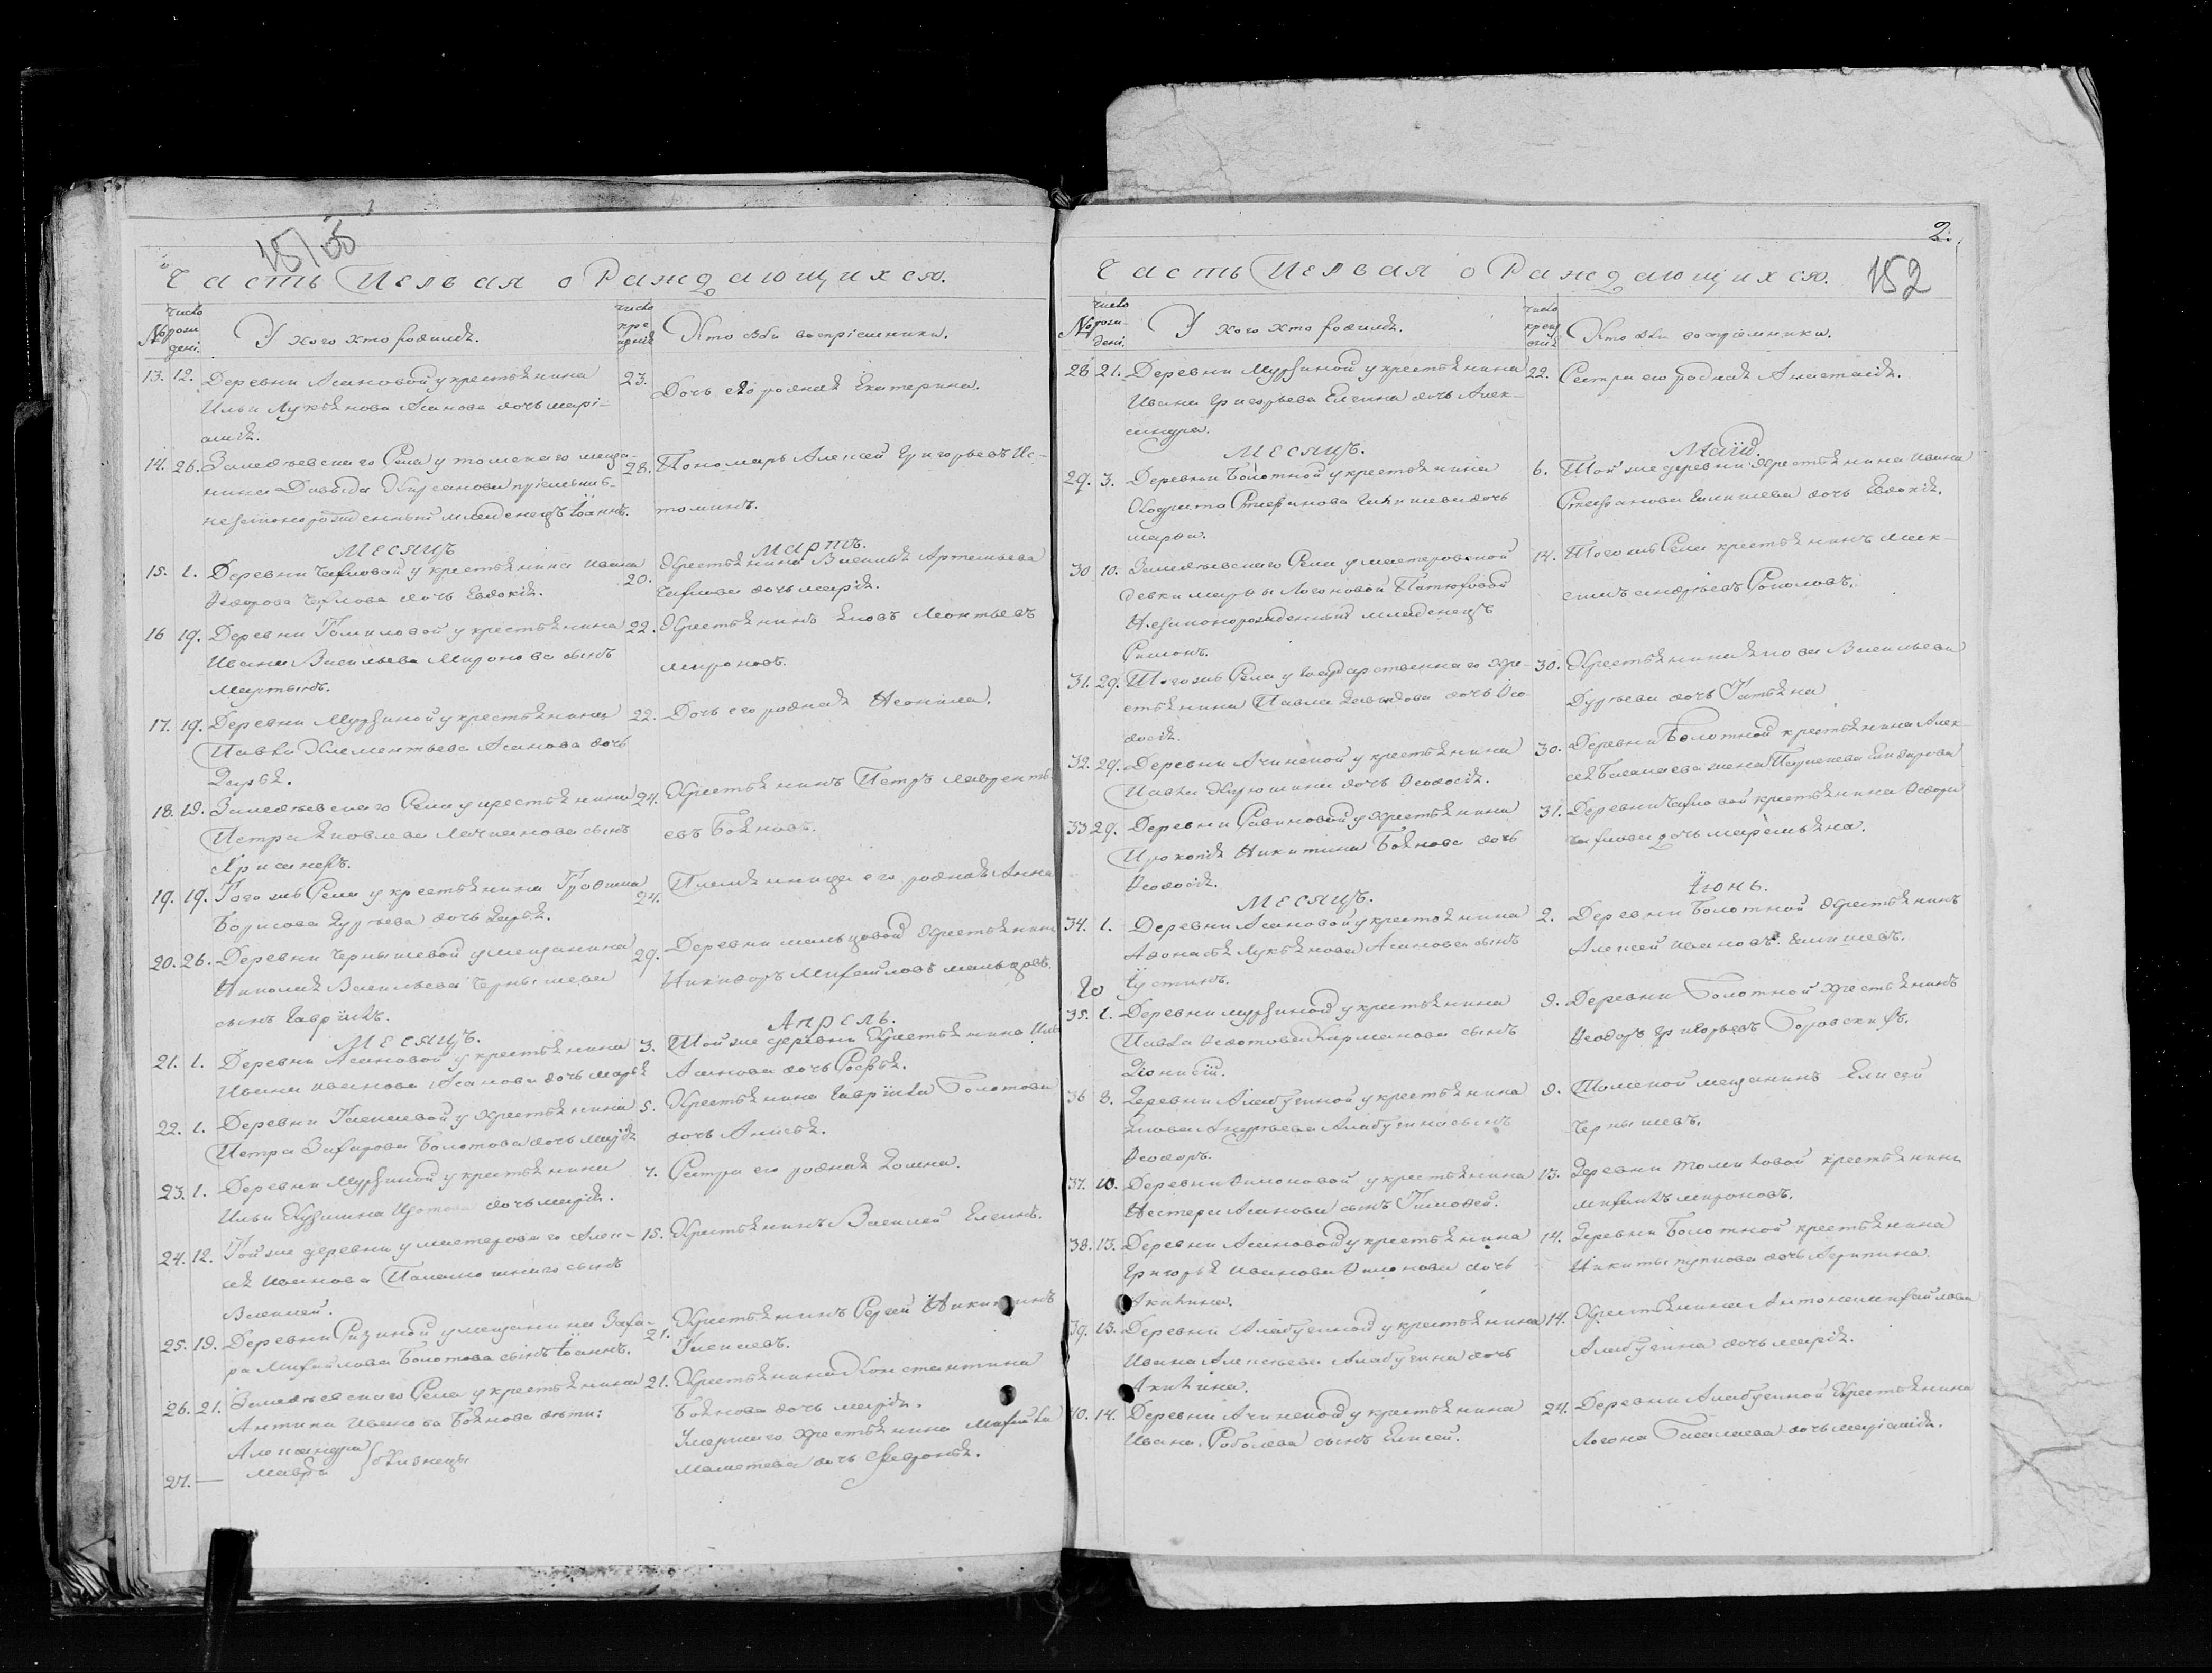 151 об
Часть Первая о Раждающихся.
№
число рожденi.
У кого кто родился.
число крещенiя
Кто были воспрiемники.
13. 12. Деревни Асановой у крестьянина
Ильи Лукьянова Асанова дочь Марi-
амiя.
23. Дочь его родная Екатерина.
14. 26. Села у томскаго меща-
нина Давыда
незаконорожденный младенецъ Iоаннъ.
28. Пономарь Алексей Григорьевъ Ис-
томинъ.
Месяцъ Мартъ.
15. 1. Деревни у крестьянина Ивана
Федорова дочь Евдокiя.
20. Крестьянина Василья Артемьева
дочь Марiя.
16 19. Деревни Томиловой у крестьянина
Ивана Васильева Миронова сынъ
Мартынъ.
22. Крестьянинъ Яковъ Леонтьевъ
Мироновъ.
17. 19. Деревни Мурзиной у крестьянина
Павла Клементьева Асанова дочь
Дарья.
22. Дочь его родная Неонила.
18. 19. Села у крестьянина
Петра Яковлева сынъ
Хрисанфъ.
24. Крестьянинъ Петръ Лаврентьевъ
Бояновъ.
19. 19. Того жъ Села у крестьянина Трофима
Борисова дочь Дарья.
24. Племянница его родная Анна
20. 26. Деревни Чернышевой у мещанина
Николая Васильева Чернышева
сынъ Гаврiилъ.
29. Деревни Мальцовой Крестьянинъ
Никифоръ Михайловъ Мальцовъ.
Месяцъ Апрель.
21. 1. Деревни Асановой у крестьянина
Ивана Иванова Асанова дочь Марья
3. Той же деревни Крестьянина Ильи
Асанова дочь Софья.
22. 1. Деревни у крестьянина
Петра Захарова Болотова дочь Марiя
5. Крестьянина Гаврiила Болотова
дочь Анисья.
23. 1. Деревни Мурзиной у крестьянина
Ильи Кузмина Изотова дочь Марiя.
7. Сестра его родная Домна.
24. 12. Той же деревни у мастероваго Алек-
сея Иванова сынъ
Василей.
15. Крестьянинъ Василей Елгинъ.
25. 19. Деревни у мещанина Заха-
ра Михайлова Болотова сынъ Iоаннъ.
21. Крестьянинъ Сергей Никитинъ
26. 21. Села у крестьянина
Антипа Иванова Боянова дети:
Александра
27. — Мавра } близнецы
21. Крестьянина Константина
Боянова дочь Марiя.
Умершаго крестьянина Михайла
дочь Февронья.
2.
152
Часть Первая о Раждающихся.
№
число рожденi.
У кого кто родился.
число крещенiя
Кто были воспрiемники.
28 21. Деревни Мурзиной у крестьянина
Ивана Григорьева Елгина дочь Алек-
сандра.
22. Сестра его родная Анастасiя.
Месяцъ Маiй.
29. 3. Деревни Болотной у крестьянина
Стефанова дочь
Марфа.
6. Той же деревни Крестьянина Ивана
Стефанова дочь Евдокiя.
30 10. Села у мастеровской
девки Марфы
Незаконорожденный младенецъ
Симонъ.
14. Того жъ Села крестьянинъ Мак-
симъ Андреевъ
31. 29. Того жъ Села у государственнаго кре-
стьянина Павла Давыдова дочь Фео-
досiя.
30. Крестьянина Якова Васильева
дочь Татьяна
32. 29. Деревни Ачинской у крестьянина
Павла дочь Феодосiя.
30. Деревни Болотной крестьянина Алек-
сея жена
33 29. Деревни у крестьянина
Прокопiя Никитина Боянова дочь
Феодосiя.
31. Деревни крестьянина Федора
дочь Маремьяна.
Месяцъ Iюнь.
34. 1. Деревни Асановой у крестьянина
Афонасья Лукьянова Асанова сынъ
Iустинъ.
2. Деревни Болотной Крестьянинъ
Алексей Ивановъ
35. 1. Деревни Мурзиной у крестьянина
Павла Федотова Карманова сынъ
Дiонисiй.
9. Деревни Болотной крестьянинъ
Феодоръ Григорьевъ Боровскихъ.
36 8. Деревни Алабугиной у крестьянина
Якова Андреева Алабугина сынъ
Феодоръ.
9. Томской мещанинъ Елисей
Чернышевъ.
37. 10. Деревни Филоновой у крестьянина
Нестера Асанова сынъ Тимофей.
13. Деревни Томиловой крестьянинъ
Михаилъ Мироновъ.
38. 13. Деревни Асановой у крестьянина
Григорья Иванова Филонова дочь
Акилина.
14. Деревни Болотной крестьянина
Никиты дочь Агрипина.
39. 13. Деревни Алабугиной у крестьянина
Ивана Алексеева Алабугина дочь
Акилина.
14. Крестьянина Антона Михайлова
Алабугина дочь Марiя.
40. 14. Деревни Ачинской у крестьянина
Ивана Соболева сынъ Елисей.
24. Деревни Алабугиной Крестьянина
Логина дочь Марiамiя.